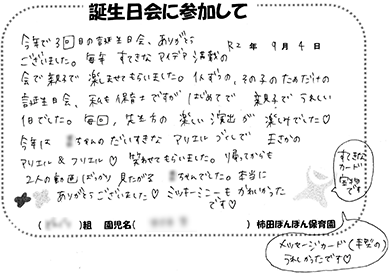 誕生日会に参加して
R2 年 9月 4日
今年で3回目の誕生日会、ありがとう
ございました。毎年 すてきなアイデア満載の
会で親子で 楽しませてもらいました。その子のためだけの
誕生日会、私も保育士ですが はじめてで 親子でうれしい
1日でした。毎回、先生方の 楽しい演出が 楽しみでした♡
今年は ちゃんのだいすきな アリエルづくしで まさかの
アリエル & フリエル♡ 笑わせてもらいました。帰ってからも
2人の動画ばっかり見たがる ちゃんでした。本当に
ありがとうございました♡ ミッキーミニーもかわいかった
です♡
すてきな
カード
宝物
です
( )組 園児名( ) 柿田ぽんぽん保育園
メッセージカード(手型の)
うれしかったです♡